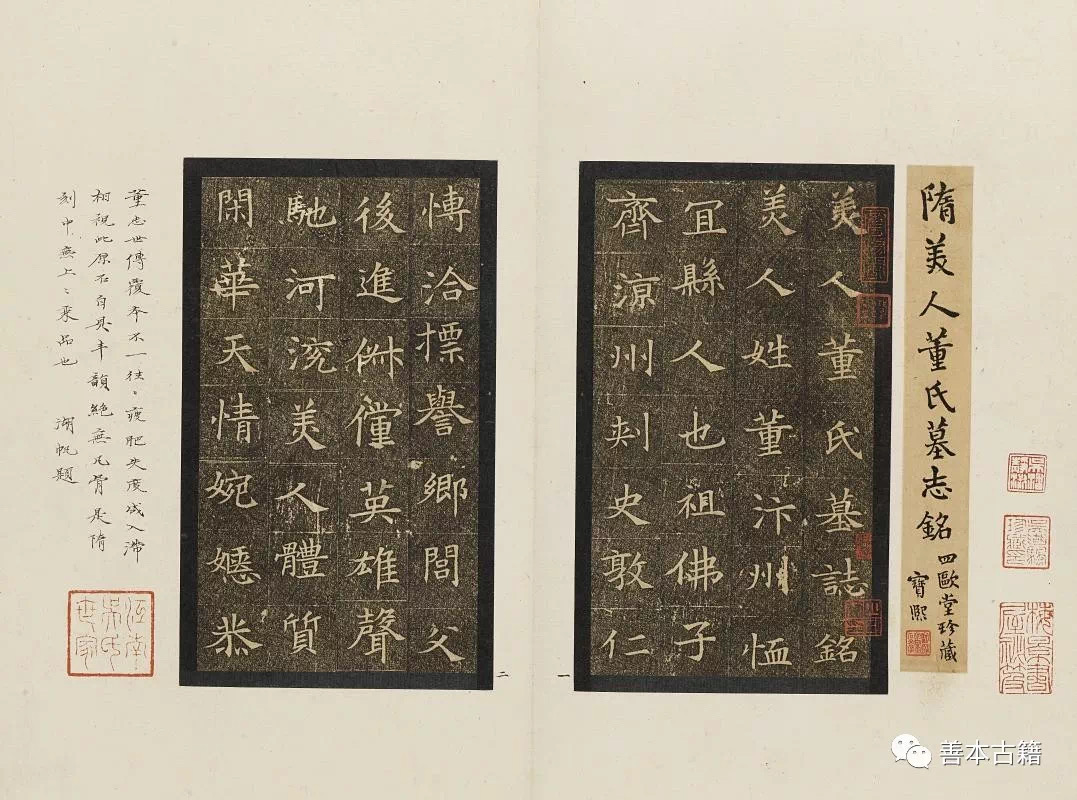 隋美人董氏墓志銘
四歐堂珍藏
寶熙
美人董氏墓誌銘
美人姓董汴州恤
冝縣人也祖佛子
齊涼州刾史敦仁
一
慱洽摽譽鄉閭父
後進俶儻英雄聲
馳河渷美人體質
閑華天情婉嫕恭
二
董志世傳覆本不一往〻瘦肥失度或入滯
相視此原石自具丰韻絕無凡骨是隋
刻中無上〻乘品也 湖帆題
江南吳氏世家
梅景書屋祕笈
善本古籍